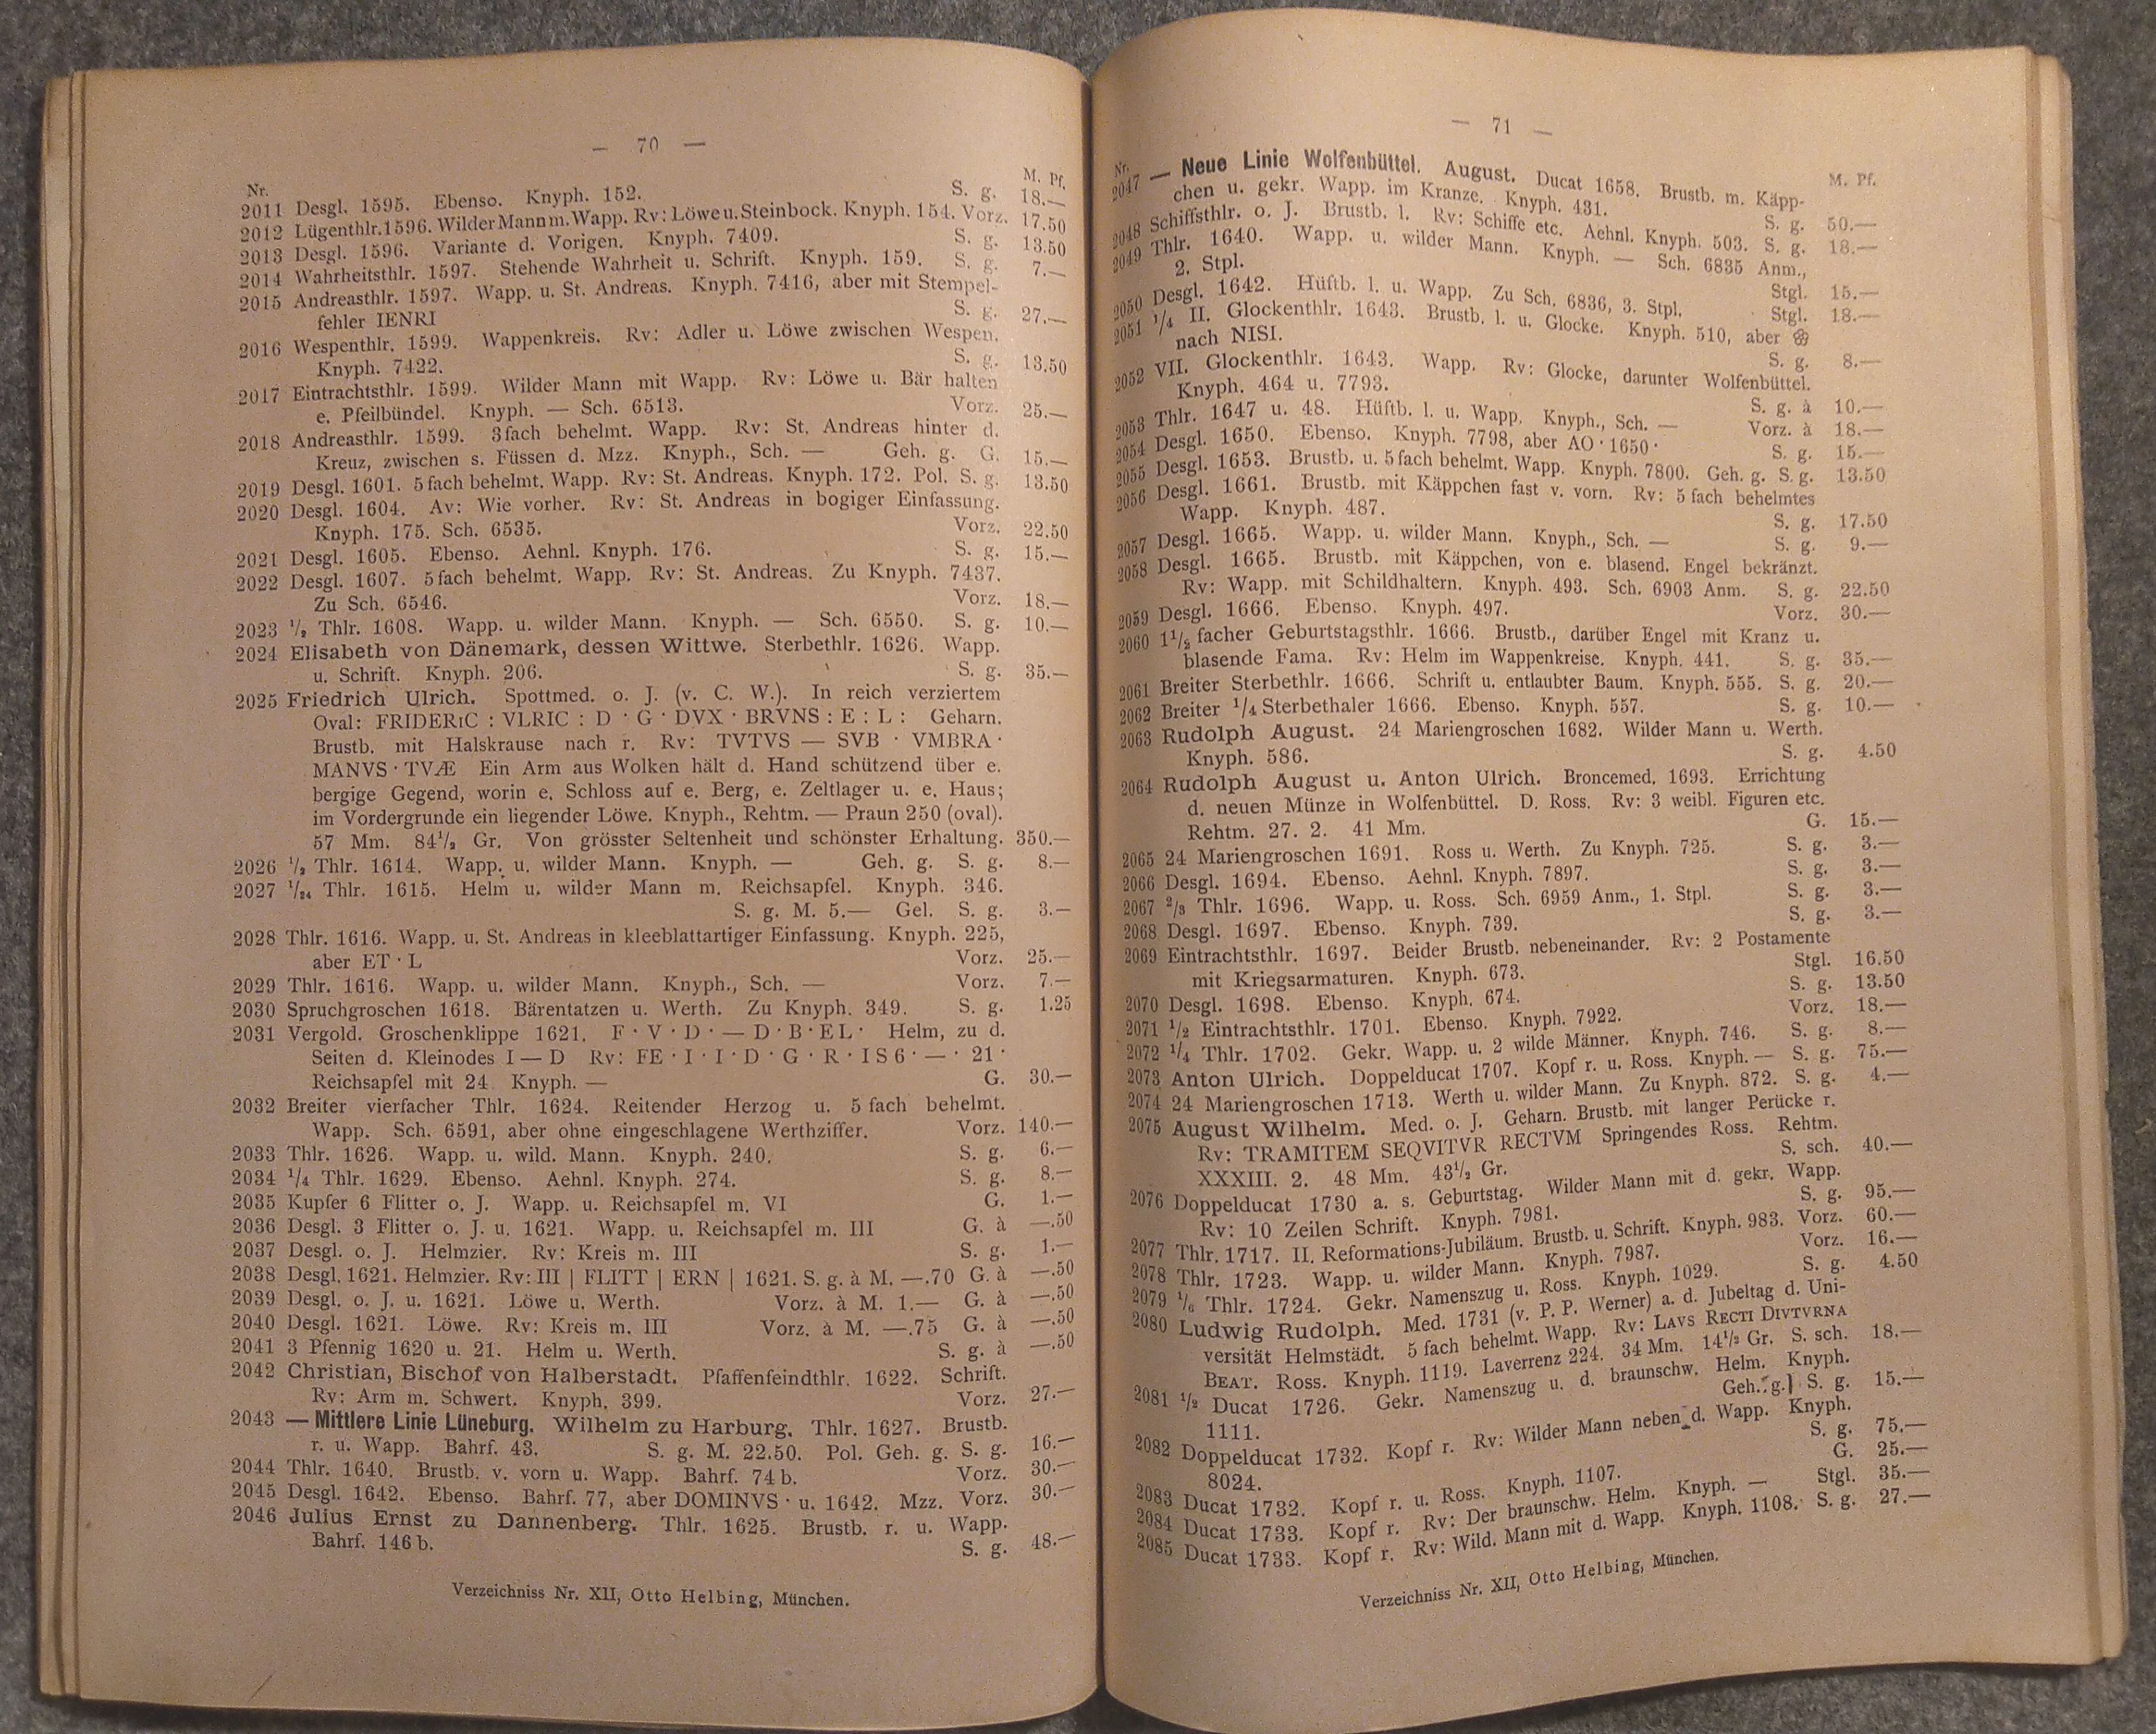 — 70 —
Nr. M. Pf.
2011 Desgl. 1595. Ebenso. Knyph. 152. S. g. 18.—
2012 Lügenthlr. 1596. Wilder Mann m. Wapp. Rv: Löwe u. Steinbock. Knyph. 154. Vorz. 17.50
2013 Desgl. 1596. Variante d. Vorigen. Knyph. 7409. S. g. 13.50
2014 Wahrheitsthlr. 1597. Stehende Wahrheit u. Schrift. Knyph. 159. S. g. 7.—
2015 Andreasthlr. 1597. Wapp. u. St. Andreas. Knyph. 7416, aber mit Stempel-
fehler IENRI S. g. 27.—
2016 Wespenthlr. 1599. Wappenkreis. Rv: Adler u. Löwe zwischen Wespen.
Knyph. 7422. S. g. 13.50
2017 Eintrachtsthlr. 1599. Wilder Mann mit Wapp. Rv: Löwe u. Bär halten
e. Pfeilbündel. Knyph. — Sch. 6513. Vorz. 25.—
2018 Andreasthlr. 1599. 3 fach behelmt. Wapp. Rv: St. Andreas hinter d.
Kreuz, zwischen s. Füssen d. Mzz. Knyph., Sch. — Geh. g. G. 15.—
2019 Desgl. 1601. 5 fach behelmt. Wapp. Rv: St. Andreas. Knyph. 172. Pol. S. g. 13.50
2020 Desgl. 1604. Av: Wie vorher. Rv: St. Andreas in bogiger Einfassung.
Knyph. 175. Sch. 6535. Vorz. 22.50
2021 Desgl. 1605. Ebenso. Aehnl. Knyph. 176. S. g. 15.—
2022 Desgl. 1607. 5 fach behelmt. Wapp. Rv: St. Andreas. Zu Knyph. 7437.
Zu Sch. 6546. Vorz. 18.—
2023 ½ Thlr. 1608. Wapp. u. wilder Mann. Knyph. — Sch. 6550. S. g. 10.—
2024 Elisabeth von Dänemark, dessen Wittwe. Sterbethlr. 1626. Wapp.
u. Schrift. Knyph. 206. S. g. 35.—
2025 Friedrich Ulrich. Spottmed. o. J. (v. C. W.). In reich verziertem
Oval: FRIDERiC : VLRIC : D · G · DVX · BRVNS : E : L : Geharn.
Brustb. mit Halskrause nach r. Rv: TVTVS — SVB · VMBRA ·
MANVS · TVÆ Ein Arm aus Wolken hält d. Hand schützend über e.
bergige Gegend, worin e. Schloss auf e. Berg, e. Zeltlager u. e. Haus;
im Vordergrunde ein liegender Löwe. Knyph., Rehtm. — Praun 250 (oval).
57 Mm. 84½ Gr. Von grösster Seltenheit und schönster Erhaltung. 350.—
2026 ½ Thlr. 1614. Wapp. u. wilder Mann. Knyph. — Geh. g. S. g. 8.—
2027 1/24 Thlr. 1615. Helm u. wilder Mann m. Reichsapfel. Knyph. 346.
S. g. M. 5.— Gel. S. g. 3.—
2028 Thlr. 1616. Wapp. u. St. Andreas in kleeblattartiger Einfassung. Knyph. 225,
aber ET · L Vorz. 25.—
2029 Thlr. 1616. Wapp. u. wilder Mann. Knyph., Sch. — Vorz. 7.—
2030 Spruchgroschen 1618. Bärentatzen u. Werth. Zu Knyph. 349. S. g. 1.25
2031 Vergold. Groschenklippe 1621. F · V · D · — D · B · EL · Helm, zu d.
Seiten d. Kleinodes I — D Rv: FE · I · I · D · G · R · IS 6 · — · 21 ·
Reichsapfel mit 24 Knyph. — G. 30.—
2032 Breiter vierfacher Thlr. 1624. Reitender Herzog u. 5 fach behelmt.
Wapp. Sch. 6591, aber ohne eingeschlagene Werthziffer. Vorz. 140.—
2033 Thlr. 1626. Wapp. u. wild. Mann. Knyph. 240. S. g. 6.—
2034 ¼ Thlr. 1629. Ebenso. Aehnl. Knyph. 274. S. g. 8.—
2035 Kupfer 6 Flitter o. J. Wapp. u. Reichsapfel m. VI G. 1.—
2036 Desgl. 3 Flitter o. J. u. 1621. Wapp. u. Reichsapfel m. III G. à —.50
2037 Desgl. o. J. Helmzier. Rv: Kreis m. III S. g. 1.—
2038 Desgl. 1621. Helmzier. Rv: III | FLITT | ERN | 1621. S. g. à M. —.70 G. à —.50
2039 Desgl. o. J. u. 1621. Löwe u. Werth. Vorz. à M. 1.— G. à —.50
2040 Desgl. 1621. Löwe. Rv: Kreis m. III Vorz. à M. —.75 G. à —.50
2041 3 Pfennig 1620 u. 21. Helm u. Werth. S. g. à —.50
2042 Christian, Bischof von Halberstadt. Pfaffenfeindthlr. 1622. Schrift.
Rv: Arm m. Schwert. Knyph. 399. Vorz. 27.—
2043 — Mittlere Linie Lüneburg. Wilhelm zu Harburg. Thlr. 1627. Brustb.
r. u. Wapp. Bahrf. 43. S. g. M. 22.50. Pol. Geh. g. S. g. 16.—
2044 Thlr. 1640. Brustb. v. vorn u. Wapp. Bahrf. 74 b. Vorz. 30.—
2045 Desgl. 1642. Ebenso. Bahrf. 77, aber DOMINVS · u. 1642. Mzz. Vorz. 30.—
2046 Julius Ernst zu Dannenberg. Thlr. 1625. Brustb. r. u. Wapp.
Bahrf. 146 b. S. g. 48.—
Verzeichniss Nr. XII, Otto Helbing, München.
— 71 —
Nr. M. Pf.
2047 — Neue Linie Wolfenbüttel. August. Ducat 1658. Brustb. m. Käpp-
chen u. gekr. Wapp. im Kranze. Knyph. 431. S. g. 50.—
2048 Schiffsthlr. o. J. Brustb. l. Rv: Schiffe etc. Aehnl. Knyph. 503. S. g. 18.—
2049 Thlr. 1640. Wapp. u. wilder Mann. Knyph. — Sch. 6835 Anm.,
2. Stpl. Stgl. 15.—
2050 Desgl. 1642. Hüftb. l. u. Wapp. Zu Sch. 6836, 3. Stpl. Stgl. 18.—
2051 ¼ II. Glockenthlr. 1643. Brustb. l. u. Glocke. Knyph. 510, aber ֍
nach NISI. S. g. 8.—
2052 VII. Glockenthlr. 1643. Wapp. Rv: Glocke, darunter Wolfenbüttel.
Knyph. 464 u. 7793. S. g. à 10.—
2053 Thlr. 1647 u. 48. Hüftb. l. u. Wapp. Knyph., Sch. — Vorz. à 18.—
2054 Desgl. 1650. Ebenso. Knyph. 7798, aber AO · 1650 · S. g. 15.—
2055 Desgl. 1653. Brustb. u. 5 fach behelmt. Wapp. Knyph. 7800. Geh. g. S. g. 13.50
2056 Desgl. 1661. Brustb. mit Käppchen fast v. vorn. Rv: 5 fach behelmtes
Wapp. Knyph. 487. S. g. 17.50
2057 Desgl. 1665. Wapp. u. wilder Mann. Knyph., Sch. — S. g. 9.—
2058 Desgl. 1665. Brustb. mit Käppchen, von e. blasend. Engel bekränzt.
Rv: Wapp. mit Schildhaltern. Knyph. 493. Sch. 6903 Anm. S. g. 22.50
2059 Desgl. 1666. Ebenso. Knyph. 497. Vorz. 30.—
2060 1½ facher Geburtstagsthlr. 1666. Brustb., darüber Engel mit Kranz u.
blasende Fama. Rv: Helm im Wappenkreise. Knyph. 441. S. g. 35.—
2061 Breiter Sterbethlr. 1666. Schrift u. entlaubter Baum. Knyph. 555. S. g. 20.—
2062 Breiter ¼ Sterbethaler 1666. Ebenso. Knyph. 557. S. g. 10.—
2063 Rudolph August. 24 Mariengroschen 1682. Wilder Mann u. Werth.
Knyph. 586. S. g. 4.50
2064 Rudolph August u. Anton Ulrich. Broncemed. 1693. Errichtung
d. neuen Münze in Wolfenbüttel. D. Ross. Rv: 3 weibl. Figuren etc.
Rehtm. 27. 2. 41 Mm. G. 15.—
2065 24 Mariengroschen 1691. Ross u. Werth. Zu Knyph. 725. S. g. 3.—
2066 Desgl. 1694. Ebenso. Aehnl. Knyph. 7897. S. g. 3.—
2067 ⅔ Thlr. 1696. Wapp. u. Ross. Sch. 6959 Anm., 1. Stpl. S. g. 3.—
2068 Desgl. 1697. Ebenso. Knyph. 739. S. g. 3.—
2069 Eintrachtsthlr. 1697. Beider Brustb. nebeneinander. Rv: 2 Postamente
mit Kriegsarmaturen. Knyph. 673. Stgl. 16.50
2070 Desgl. 1698. Ebenso. Knyph. 674. S. g. 13.50
2071 ½ Eintrachtsthlr. 1701. Ebenso. Knyph. 7922. Vorz. 18.—
2072 ¼ Thlr. 1702. Gekr. Wapp. u. 2 wilde Männer. Knyph. 746. S. g. 8.—
2073 Anton Ulrich. Doppelducat 1707. Kopf r. u. Ross. Knyph. — S. g. 75.—
2074 24 Mariengroschen 1713. Werth u. wilder Mann. Zu Knyph. 872. S. g. 4.—
2075 August Wilhelm. Med. o. J. Geharn. Brustb. mit langer Perücke r.
Rv: TRAMITEM SEQVITVR RECTVM Springendes Ross. Rehtm.
XXXIII. 2. 48 Mm. 43½ Gr. S. sch. 40.—
2076 Doppelducat 1730 a. s. Geburtstag. Wilder Mann mit d. gekr. Wapp.
Rv: 10 Zeilen Schrift. Knyph. 7981. S. g. 95.—
2077 Thlr. 1717. II. Reformations-Jubiläum. Brustb. u. Schrift. Knyph. 983. Vorz. 60.—
2078 Thlr. 1723. Wapp. u. wilder Mann. Knyph. 7987. Vorz. 16.—
2079 ⅙ Thlr. 1724. Gekr. Namenszug u. Ross. Knyph. 1029. S. g. 4.50
2080 Ludwig Rudolph. Med. 1731 (v. P. P. Werner) a. d. Jubeltag d. Uni-
versität Helmstädt. 5 fach behelmt. Wapp. Rv: LAVS RECTI DIVTVRNA
BEAT. Ross. Knyph. 1119. Laverrenz 224. 34 Mm. 14½ Gr. S. sch. 18.—
2081 ½ Ducat 1726. Gekr. Namenszug u. d. braunschw. Helm. Knyph.
1111. Geh. g. S. g. 15.—
2082 Doppelducat 1732. Kopf r. Rv: Wilder Mann neben d. Wapp. Knyph.
8024. S. g. 75.—
2083 Ducat 1732. Kopf r. u. Ross. Knyph. 1107. G. 25.—
2084 Ducat 1733. Kopf r. Rv: Der braunschw. Helm. Knyph. — Stgl. 35.—
2085 Ducat 1733. Kopf r. Rv: Wild. Mann mit d. Wapp. Knyph. 1108. S. g. 27.—
Verzeichniss Nr. XII, Otto Helbing, München.